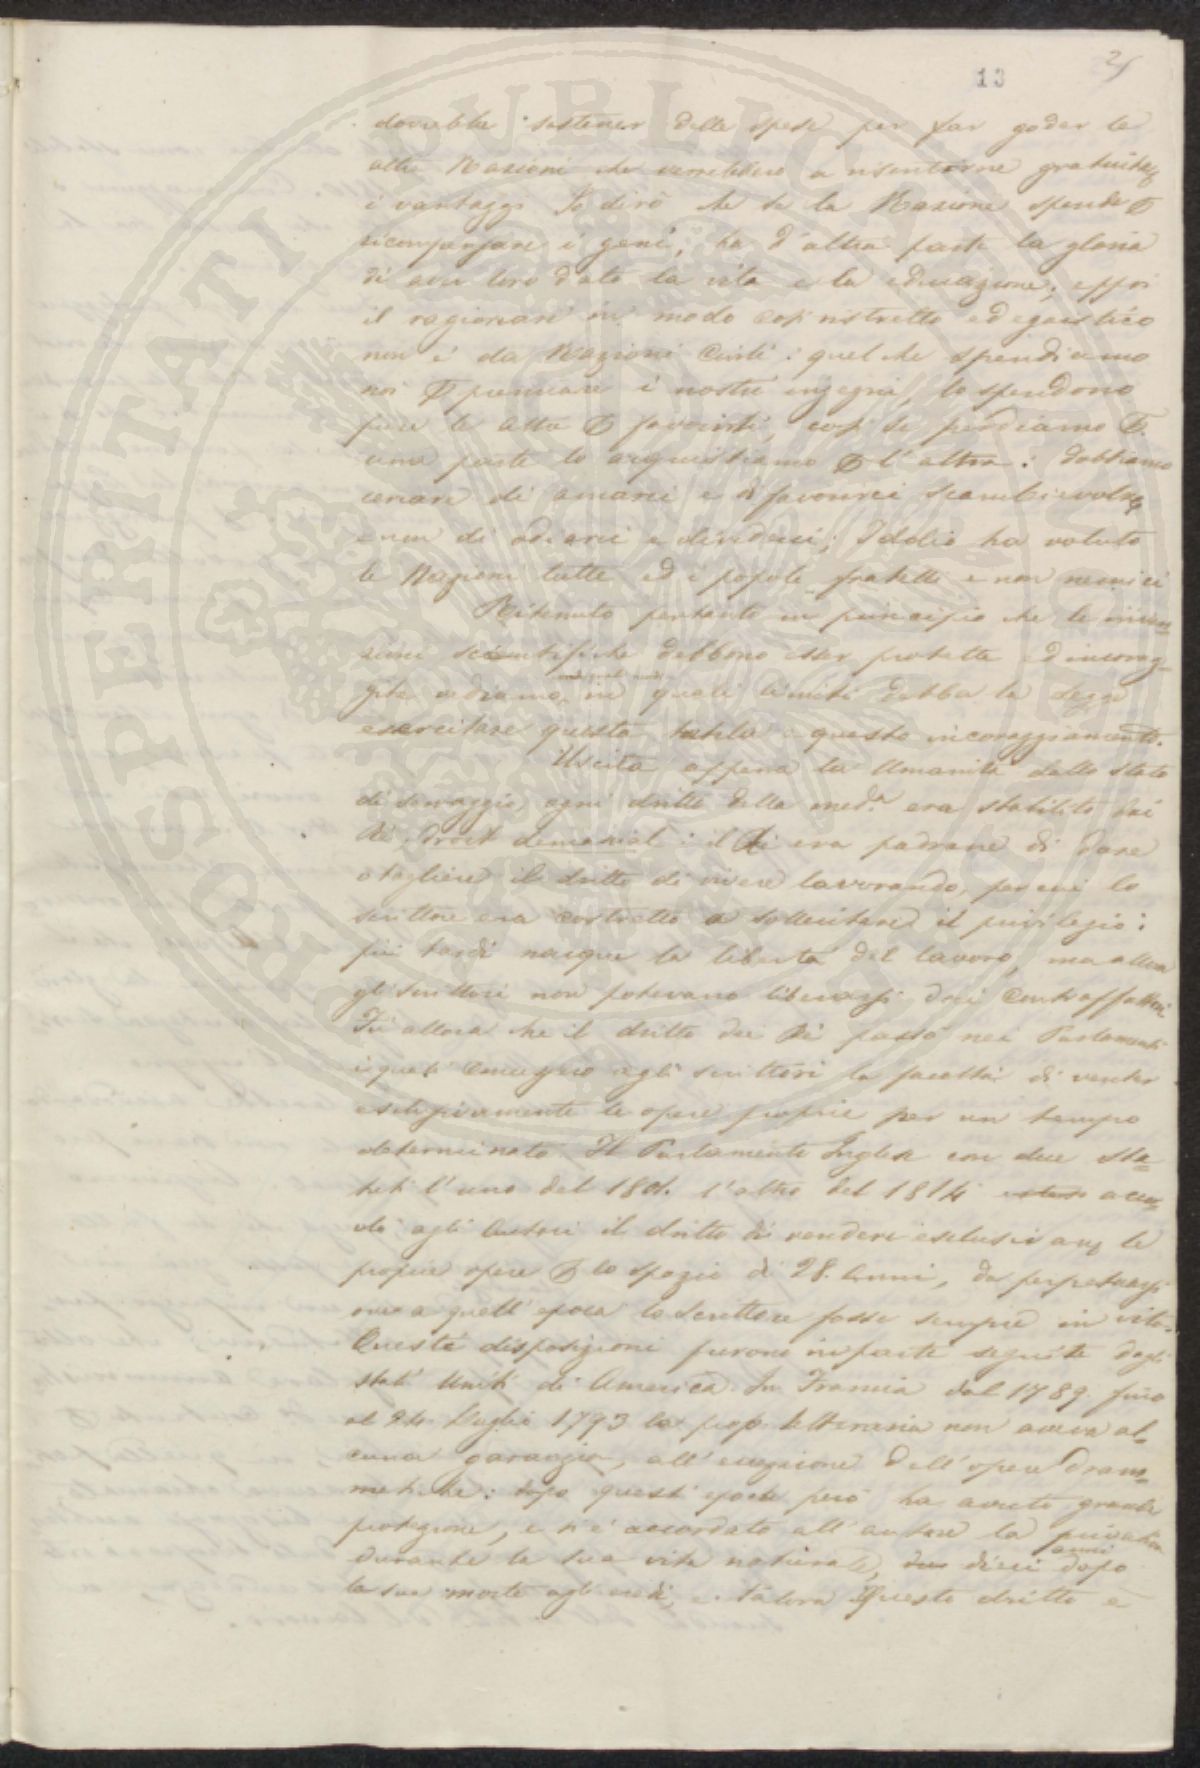 13
dovrebbe sostener delle spese per far goder le
altre Nazioni che verrebbero a risentirne gratuita
i vantaggi Io dirò che se la Nazione spende
ricompensare i geni, ha d'altra parte la gloria
di aver loro dato la vita e la educazione; eppoi
il ragionare in modo così ristretto ed egoistico
non è da Nazioni Civili: quel che spendiamo
noi premiare i nostri ingegni, lo spendono
pure le altre favorirli, così se perdiamo
una parte lo acquistiamo l'altra: dobbiamo
cercare di amarci e di favorirci
e non di odiarci e dividerci; Iddio ha voluto
le Nazioni tutte ed i popoli fratelli e non nemici
Ritenuto pertanto in principio che le inven=
zioni scientifiche debbono esser protette ed incorag=
gite vediamo in quali limiti debba la Legge
esercitare questa tutela e questo incoraggiamento.
Uscita appena la Umanità dallo stato
di selvaggio, ogni dritto della med.a era stabilito dai
Rè : il Rè era padrone di dare
o togliere il dritto di vivere lavorando, per cui lo
scrittore era costretto a sollecitare il privilegio:
più tardi nacque la libertà del lavoro, ma allora
gli scrittori non potevano liberarsi dai Contraffattori
Fu allora che il dritto dei Rè passò nei Parlamenti
i quali agli scrittori la facoltà di vender
esclusivamente le opere proprie per un tempo
determinato. Il Parlamento Inglese con due sta=
tuti l'uno del 1801. l'altro del 1814 accor=
dò agli Autori il dritto di vendere le
proprie opere lo spazio di 28. Anni, da perpetuarsi
ove a quell'epoca lo Scrittore fosse sempre in vita.
Queste disposizioni furono in parte seguite dagli
Stati Uniti di America. In Francia dal 1789. fino
al 24. Luglio 1793 la prop. letteraria non aveva al=
cuna garanzia, all'eccezione dell'opere dram=
matiche: dopo quest'epoca però ha avuto grande
protezione, e si è accordato all'autore la privativa
durante la sua vita naturale, dieci anni dopo
la sua morte agli eredi, e talora Questo dritto è